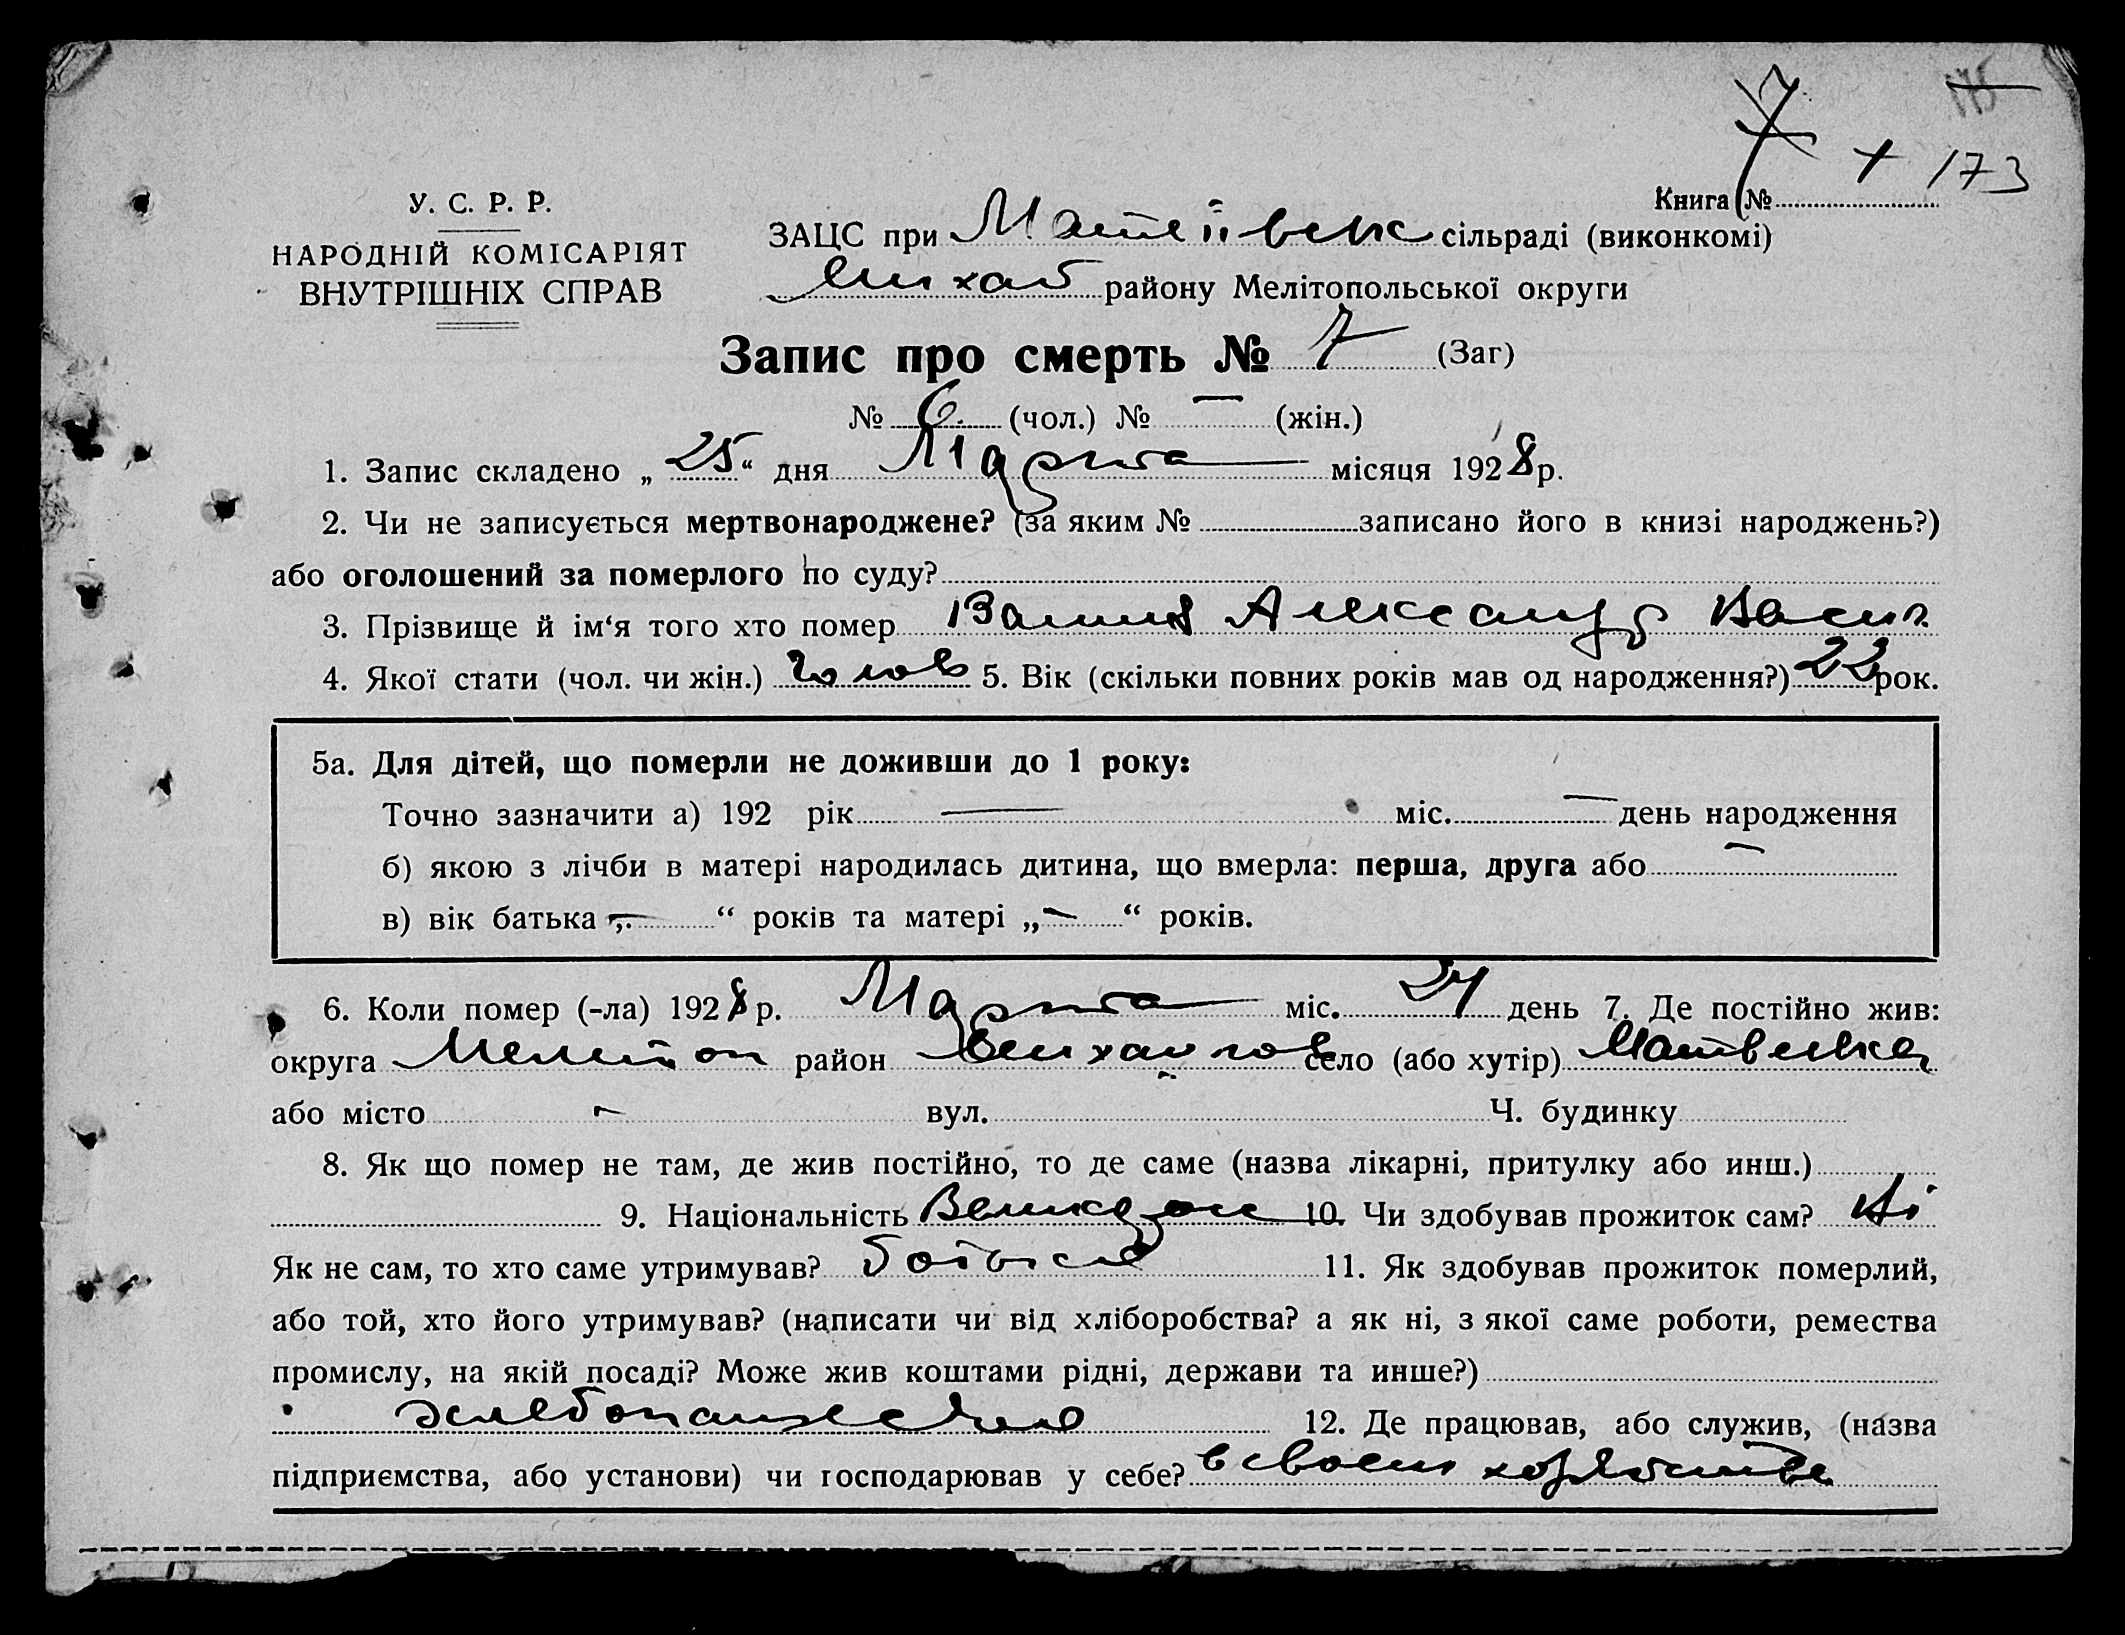 7 175
+ 173
У. С. Р. Р.
Книга №
НАРОДНІЙ КОМІСАРІЯТ
ВНУТРІШНІХ СПРАВ
ЗАЦС при сільраді (виконкомі)
Михай району Мелітопольської округи
Запис про смерть № 7 (Заг)
№ 6 (чол.) № — (жін.)
1. Запис складено „ 25 “ дня Марта місяця 1928 р.
2. Чи не записується мертвонароджене? (за яким № записано його в книзі народжень?)
або оголошений за померлого по суду?
3. Прізвище й ім‘я того хто помер Александр Васил
4. Якої стати (чол. чи жін.) чолов 5. Вік (скільки повних років мав од народження?) 22 рок.
5а. Для дітей, що померли не доживши до 1 року:
Точно зазначити а) 192 рік — міс. — день народження
б) якою з лічби в матері народилась дитина, що вмерла: перша, друга або —
в) вік батька „ — “ років та матері „ — “ років.
6. Коли помер (-ла) 1928 р. Марта міс. 24 день 7. Де постійно жив:
округа Мелитоп район Михайлов село (або хутір) Матвеевка
або місто — вул. Ч. будинку
8. Як що помер не там, де жив постійно, то де саме (назва лікарні, притулку або инш.)
9. Національність 10. Чи здобував прожиток сам? Ні
Як не сам, то хто саме утримував? батько 11. Як здобував прожиток померлий,
або той, хто його утримував? (написати чи від хліборобства? а як ні, з якої саме роботи, ремества
промислу, на якій посаді? Може жив коштами рідні, держави та инше?)
12. Де працював, або служив, (назва
підприємства, або установи) чи господарював у себе? в своем